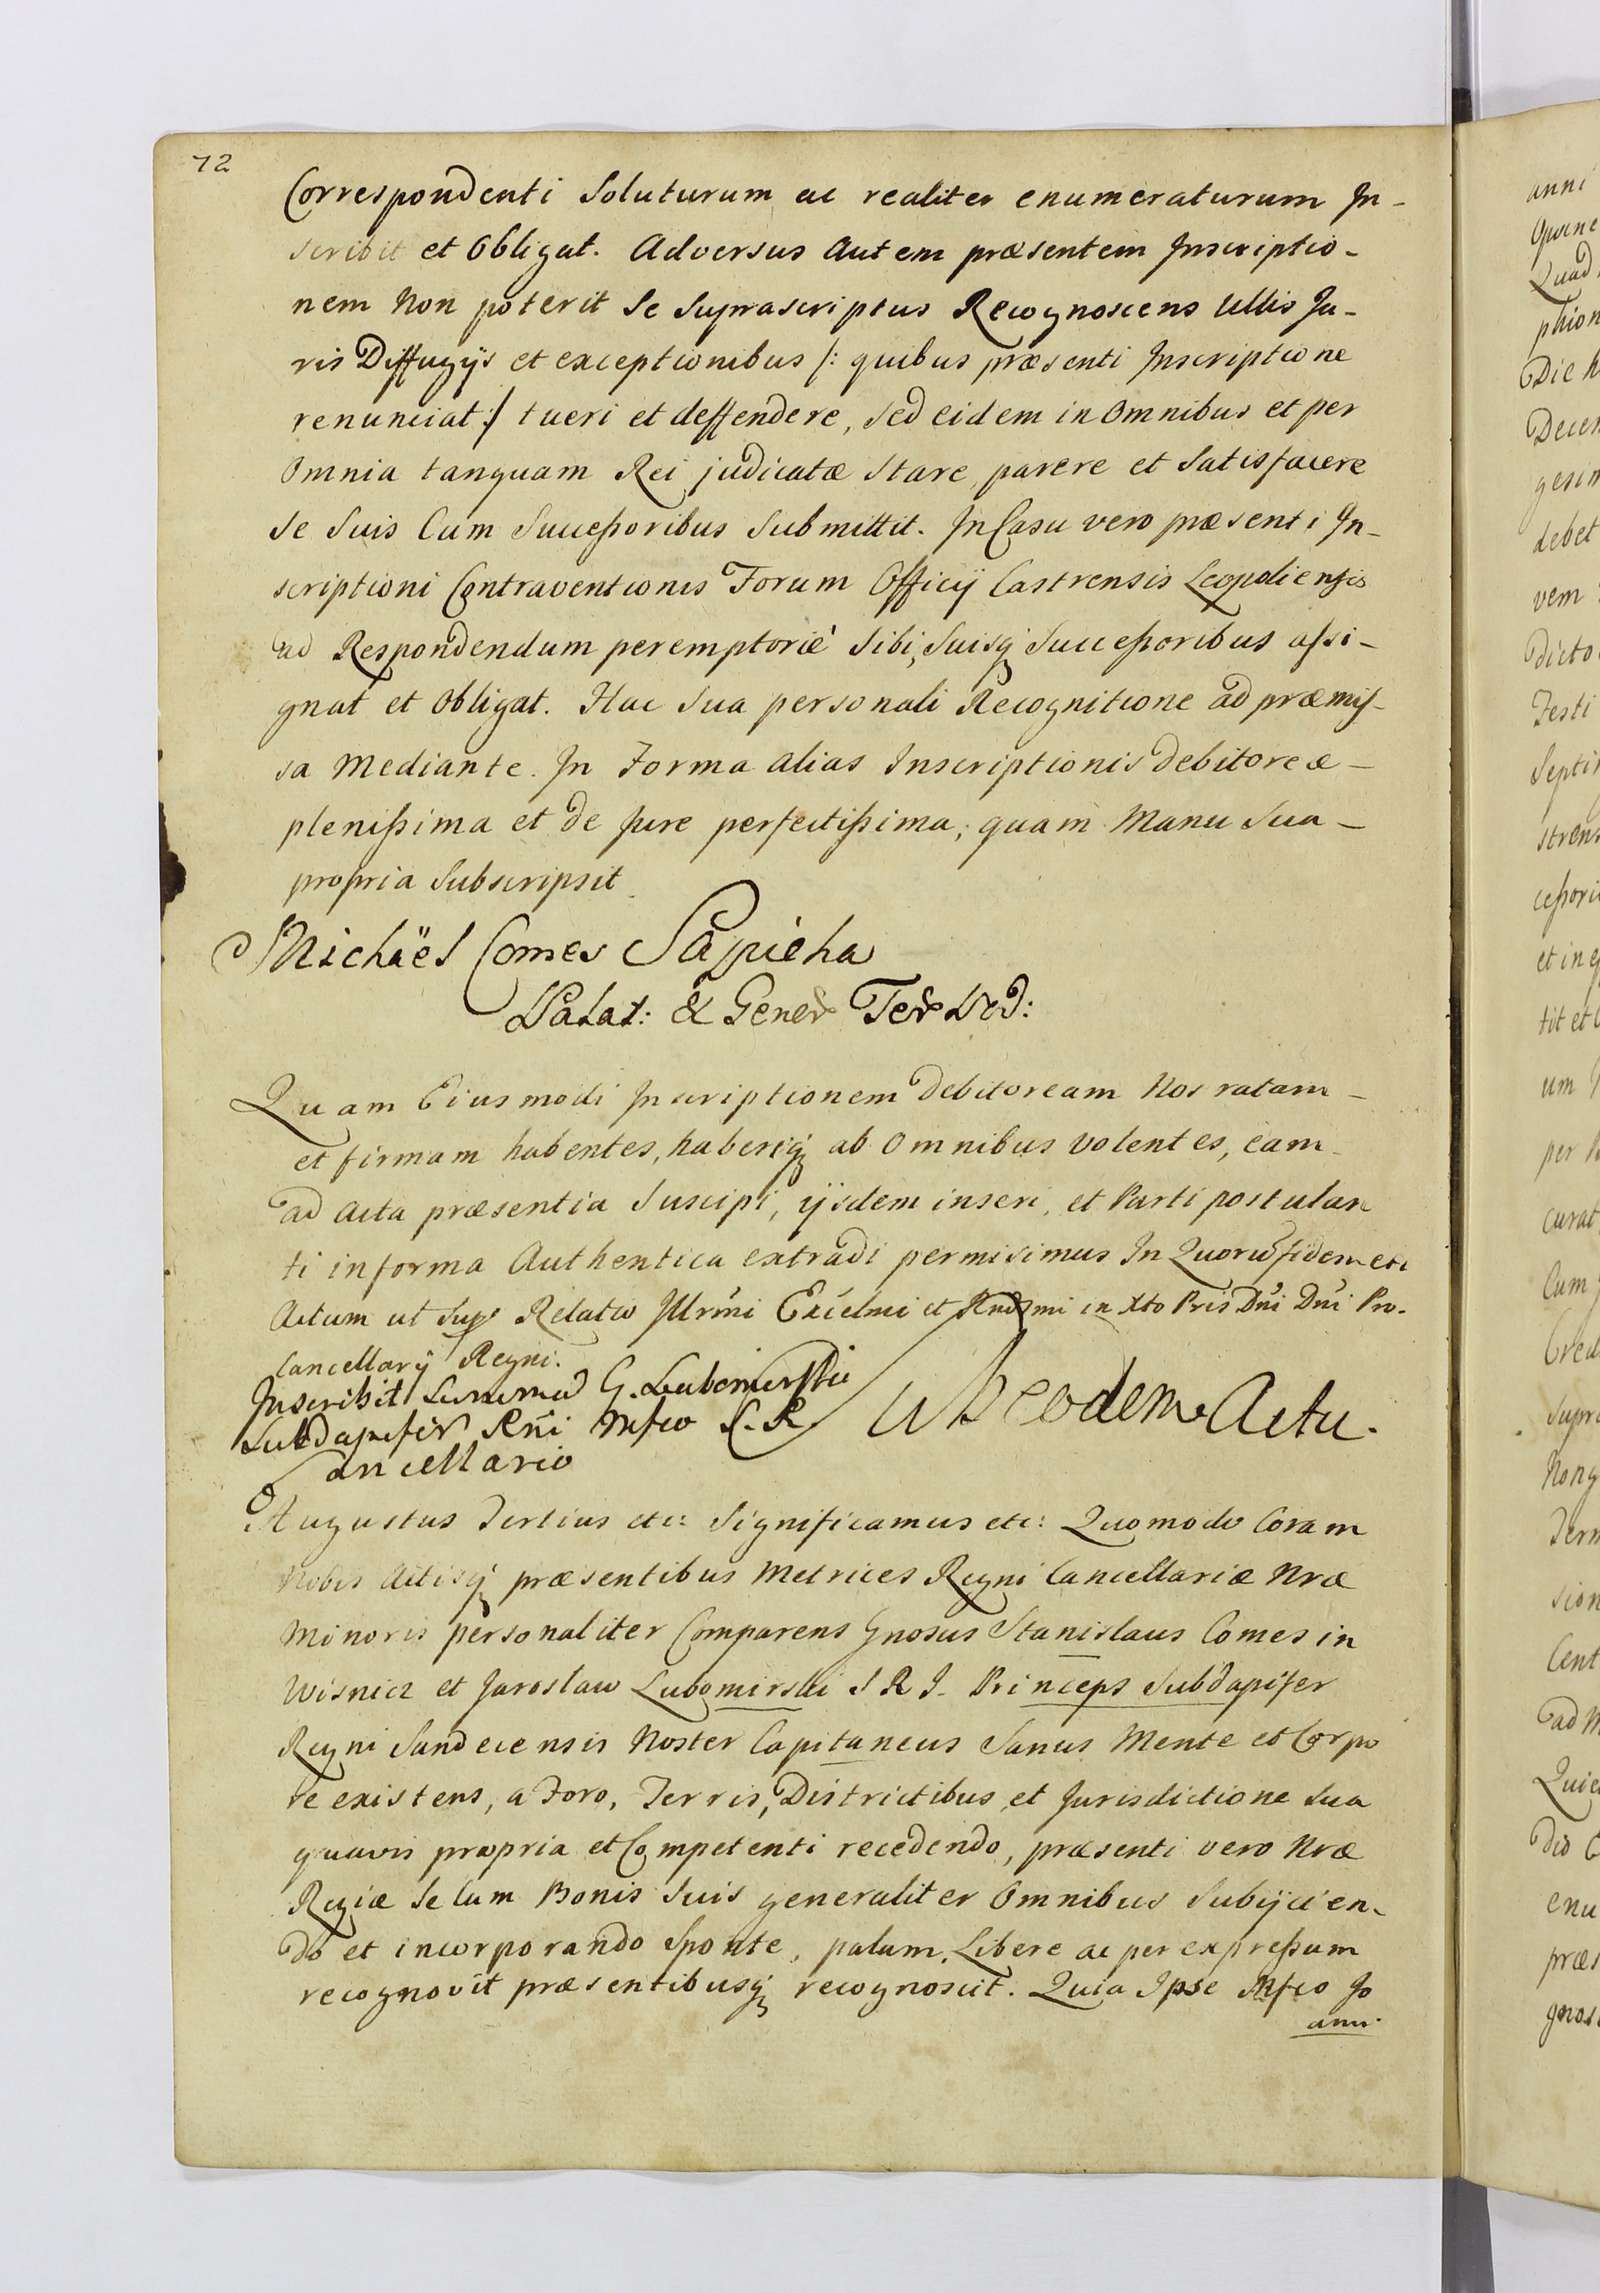 72
Correspondenti Soluturum ac realiter enumeraturum In-
scribit et Obligat. Adversus Autem præsentem Inscriptio-
nem Non poterit Se Suprascriptus Recognoscens Ullis Ju-
ris Diffugijs et exceptionibus /: quibus præsenti Inscriptione
renunciat :/ tueri et deffendere, Sed eidem in Omnibus et per
Omnia tanquam Rei judicatæ Stare, parere et Satisfacere
Se Suis Cum Successoribus Submittit. In Casu vero præsenti In-
scriptioni Contraventionis Forum Officij Castrensis Leopoliensis
ad Respondendum peremptoriè Sibi, Suisq Successoribus assi-
gnat et Obligat. Hac Sua personali Recognitione ad præmis-
sa Mediante. In Forma alias Inscriptionis debitoreæ -
plenissima et de Jure perfectissima, quam Manu Sua -
propria Subscripsit.
Michaël Comes Sapieha
Palat: & Gener Ter
Quam Eiusmodi Inscriptionem debitoream Nos ratam -
et firmam habentes, haberiq ab Omnibus volentes, eam
ad Acta præsentia Suscipi, ijsdem inseri, et Parti postulan
ti in forma Authentica extradi permisimus In Quorū fidem etc
Actum ut Supr Relatio Illrmi Excelmi et Rndmi in Xto Pris Dni Dni Pro-
Cancellarij Regni.
Inscribit Summa G. Lubomirski
Subdapifer Rñi Mfco C. R
Cancellario
Ut eodem Actu.
Augustus Tertius etc: Significamus etc: Quomodo Coram
Nobis Actisq præsentibus Metrices Regni Cancellariæ Nræ
Minoris personaliter Comparens Gnosus Stanislaus Comes in
Wisnicz et Jaroslaw Lubomirski S R I. Princeps Subdapifer
Regni Sandecensis Noster Capitaneus Sanus Mente et Corpo
re existens, a Foro, Terris, Districtibus et Jurisdictione Sua
quavis propria et Competenti recedendo, præsenti vero Nræ
Regiæ Se Cum Bonis Suis generaliter Omnibus Subijcien-
do et incorporando Sponte, palam, Libere ac per expressum
recognovit præsentibusq recognoscit. Quia Ipse Mfco Jo
anni